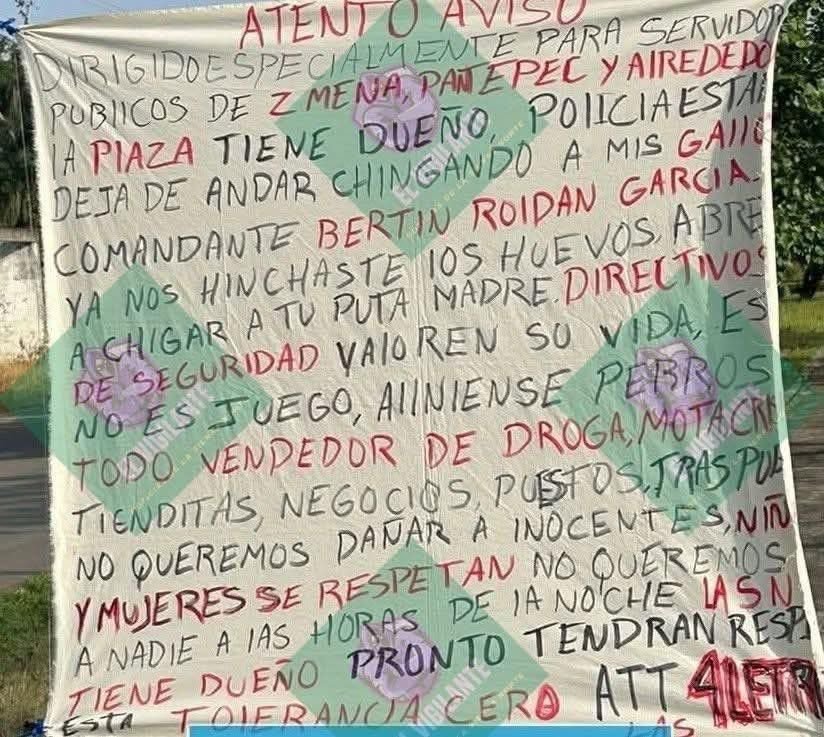 ATENTO AVISO
DIRIGIDO ESPECIALMENTE PARA SERVIDOR
PUBLICOS DE Z MENA, PANTEPEC Y AIREDEDO
IA PIAZA TIENE DUEÑO, POIICIA ESTA
DEJA DE ANDAR CHINGANDO A MIS GAIIO
COMANDANTE BERTIN ROIDAN GARCIA.
YA NOS HINCHASTE IOS HUEVOS, ABRE
A CHIGAR A TU PUTA MADRE. DIRECTIVOS
DE SEGURIDAD VAIOREN SU VIDA, ES
NO ES JUEGO, AIINIENSE PERROS
TODO VENDEDOR DE DROGA, MOTA CRI
TIENDITAS, NEGOCIOS, PUESTOS, TRASPUE
NO QUEREMOS DAÑAR A INOCENTES, NIÑ
Y MUJERES SE RESPETAN NO QUEREMOS
A NADIE A IAS HORAS DE IA NOCHE IAS N
TIENE DUEÑO PRONTO TENDRAN RESP
ESTA TOIERANCIA CERO ATT 4 LETR
IAS
EL VIGILANTE
EL VIGILANTE
EL VIGILANTE
EL VIGILANTE